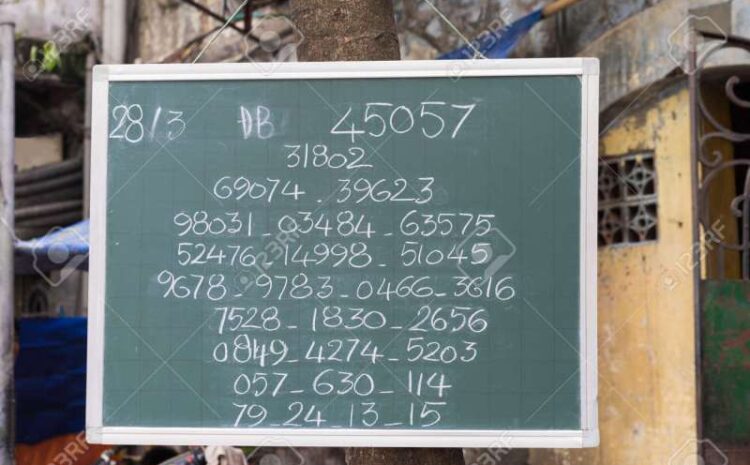 28/3 ĐB 45057
31802
69074 . 39623
98031 - 03484 - 63575
52476 - 14998 - 51045
9678 - 9783 - 0466 - 3616
7528 - 1830 - 2656
0849 - 4274 - 5203
057 - 630 - 114
79 - 24 - 13 - 15